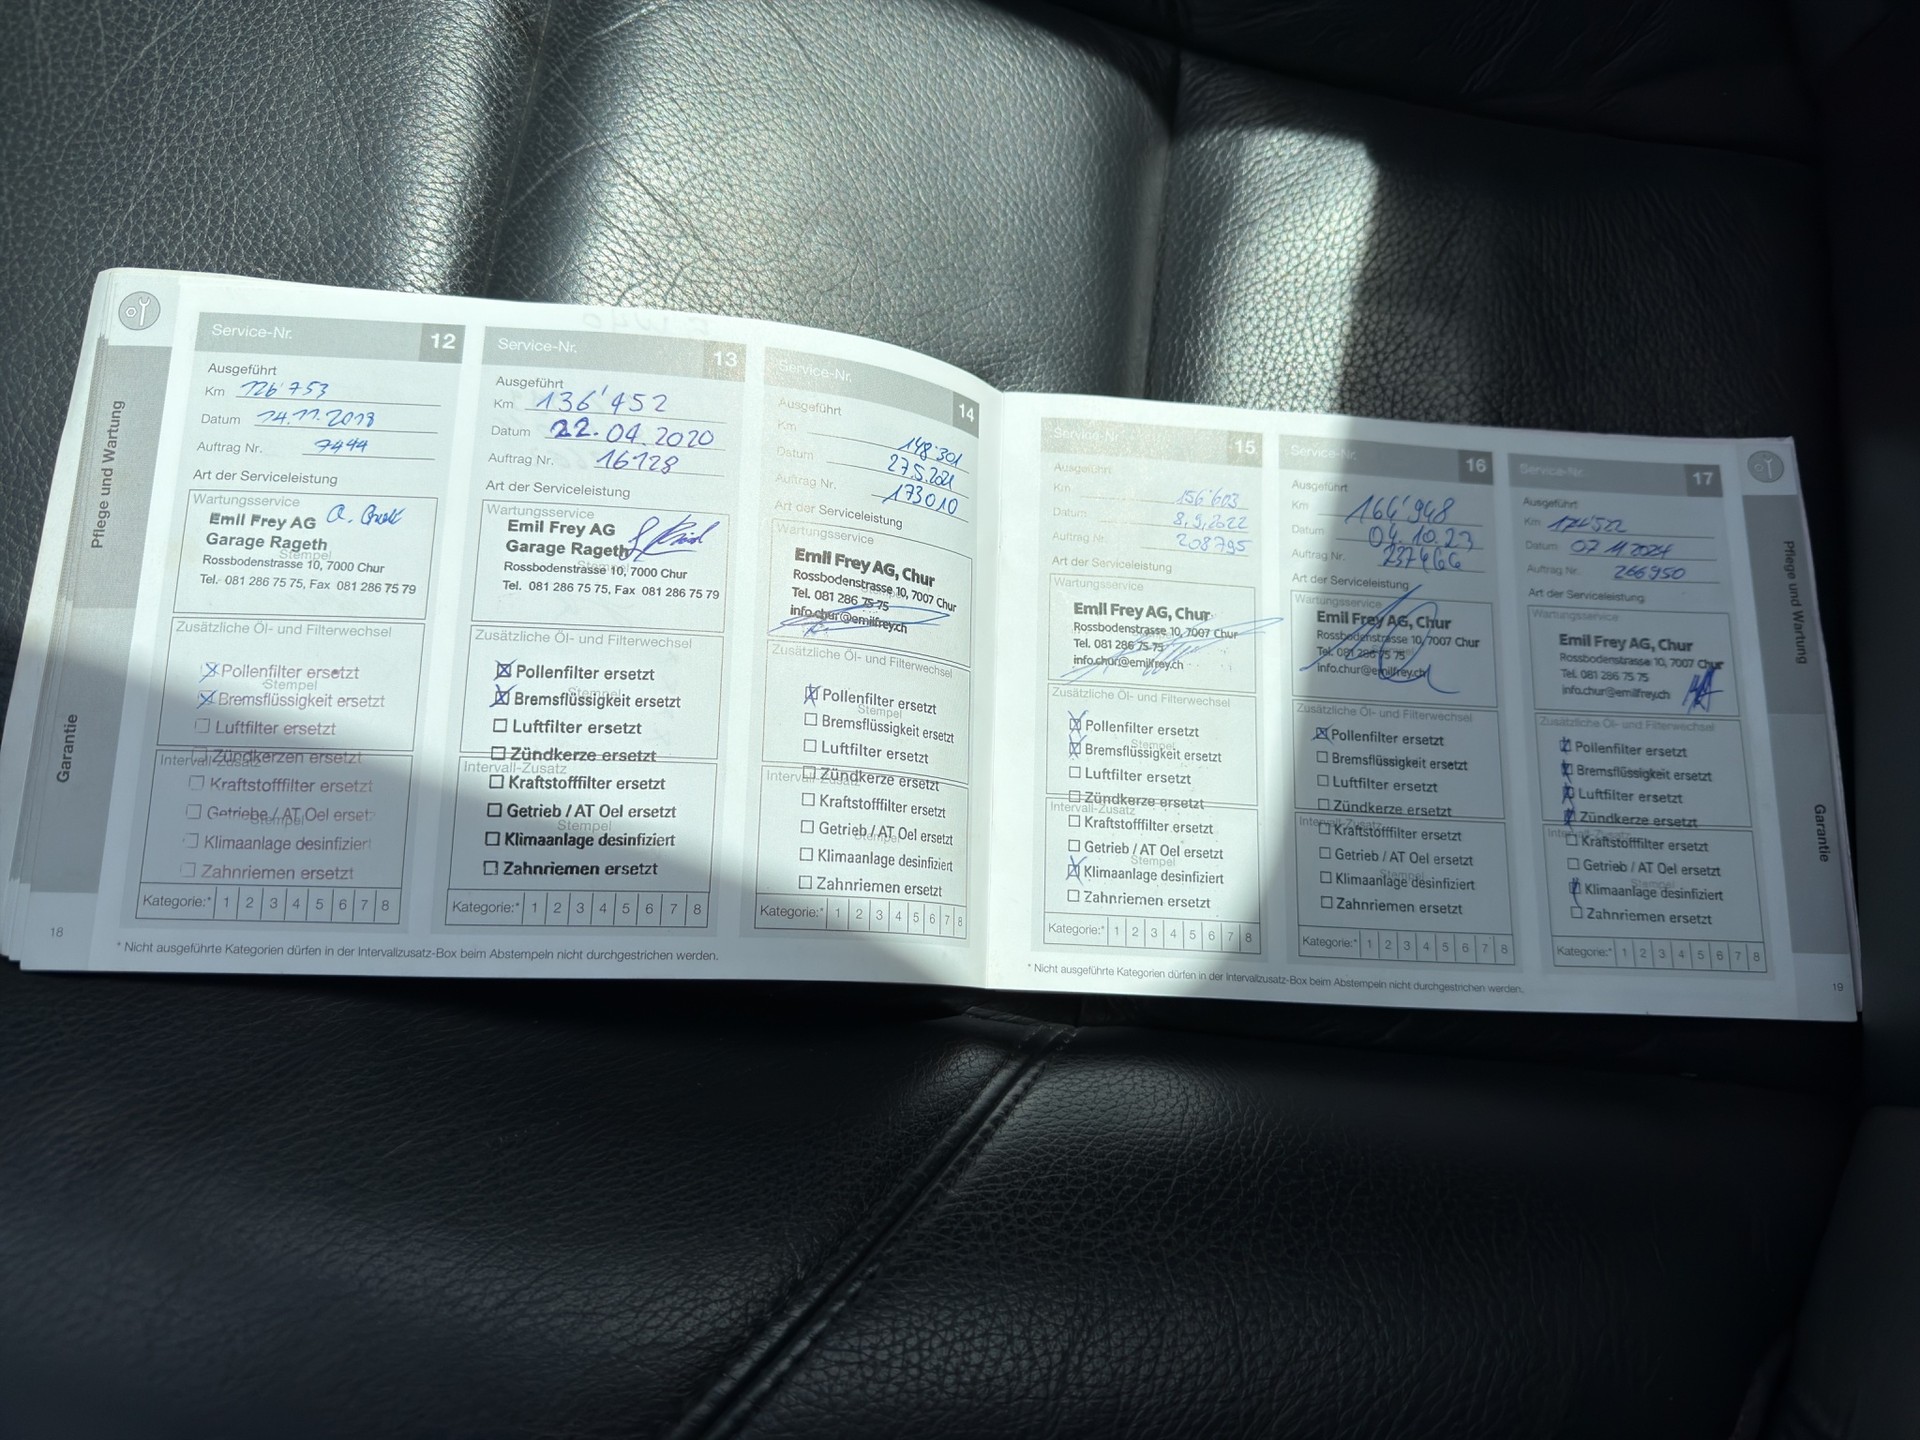 Pflege und Wartung
Garantie
Service-Nr. 12
Ausgeführt
Km 126'753
Datum 14.11.2018
Auftrag Nr. 7444
Art der Serviceleistung
Wartungsservice
Emil Frey AG
Garage Rageth
Stempel
Rossbodenstrasse 10, 7000 Chur
Tel. 081 286 75 75, Fax 081 286 75 79
Zusätzliche Öl- und Filterwechsel
Pollenfilter ersetzt
Stempel
Bremsflüssigkeit ersetzt
Luftfilter ersetzt
Zündkerzen ersetzt
Intervall-Zusatz
Kraftstofffilter ersetzt
Getriebe / AT Oel ersetzt
Stempel
Klimaanlage desinfiziert
Zahnriemen ersetzt
Kategorie:* 1 2 3 4 5 6 7 8
18
Service-Nr. 13
Ausgeführt
Km 136'452
Datum 22.04.2020
Auftrag Nr. 16128
Art der Serviceleistung
Wartungsservice
Emil Frey AG
Garage Rageth
Stempel
Rossbodenstrasse 10, 7000 Chur
Tel. 081 286 75 75, Fax 081 286 75 79
Zusätzliche Öl- und Filterwechsel
Pollenfilter ersetzt
Stempel
Bremsflüssigkeit ersetzt
Luftfilter ersetzt
Zündkerze ersetzt
Intervall-Zusatz
Kraftstofffilter ersetzt
Getrieb / AT Oel ersetzt
Stempel
Klimaanlage desinfiziert
Zahnriemen ersetzt
Kategorie:* 1 2 3 4 5 6 7 8
Service-Nr. 14
Ausgeführt
Km 148'301
Datum 27.5.2021
Auftrag Nr. 173010
Art der Serviceleistung
Wartungsservice
Emil Frey AG, Chur
Rossbodenstrasse 10, 7007 Chur
Tel. 081 286 75 75
info.chur@emilfrey.ch
Zusätzliche Öl- und Filterwechsel
Pollenfilter ersetzt
Stempel
Bremsflüssigkeit ersetzt
Luftfilter ersetzt
Zündkerze ersetzt
Intervall-Zusatz
Kraftstofffilter ersetzt
Getrieb / AT Oel ersetzt
Stempel
Klimaanlage desinfiziert
Zahnriemen ersetzt
Kategorie:* 1 2 3 4 5 6 7 8
* Nicht ausgeführte Kategorien dürfen in der Intervallzusatz-Box beim Abstempeln nicht durchgestrichen werden.
Service-Nr. 15
Ausgeführt
Km 156'603
Datum 8.9.2022
Auftrag Nr. 208795
Art der Serviceleistung
Wartungsservice
Emil Frey AG, Chur
Rossbodenstrasse 10, 7007 Chur
Tel. 081 286 75 75
info.chur@emilfrey.ch
Zusätzliche Öl- und Filterwechsel
Pollenfilter ersetzt
Stempel
Bremsflüssigkeit ersetzt
Luftfilter ersetzt
Zündkerze ersetzt
Intervall-Zusatz
Kraftstofffilter ersetzt
Getrieb / AT Oel ersetzt
Stempel
Klimaanlage desinfiziert
Zahnriemen ersetzt
Kategorie:* 1 2 3 4 5 6 7 8
Service-Nr. 16
Ausgeführt
Km 164'948
Datum 04.10.23
Auftrag Nr. 237466
Art der Serviceleistung
Wartungsservice
Emil Frey AG, Chur
Rossbodenstrasse 10, 7007 Chur
Tel. 081 286 75 75
info.chur@emilfrey.ch
Zusätzliche Öl- und Filterwechsel
Pollenfilter ersetzt
Bremsflüssigkeit ersetzt
Luftfilter ersetzt
Zündkerze ersetzt
Intervall-Zusatz
Kraftstofffilter ersetzt
Getrieb / AT Oel ersetzt
Stempel
Klimaanlage desinfiziert
Zahnriemen ersetzt
Kategorie:* 1 2 3 4 5 6 7 8
Service-Nr. 17
Ausgeführt
Km
Datum 07 11 2024
Auftrag Nr. 266950
Art der Serviceleistung
Wartungsservice
Emil Frey AG, Chur
Rossbodenstrasse 10, 7007 Chur
Tel. 081 286 75 75
info.chur@emilfrey.ch
Zusätzliche Öl- und Filterwechsel
Pollenfilter ersetzt
Bremsflüssigkeit ersetzt
Luftfilter ersetzt
Zündkerze ersetzt
Intervall-Zusatz
Kraftstofffilter ersetzt
Getrieb / AT Oel ersetzt
Stempel
Klimaanlage desinfiziert
Zahnriemen ersetzt
Kategorie:* 1 2 3 4 5 6 7 8
* Nicht ausgeführte Kategorien dürfen in der Intervallzusatz-Box beim Abstempeln nicht durchgestrichen werden.
19
Pflege und Wartung
Garantie